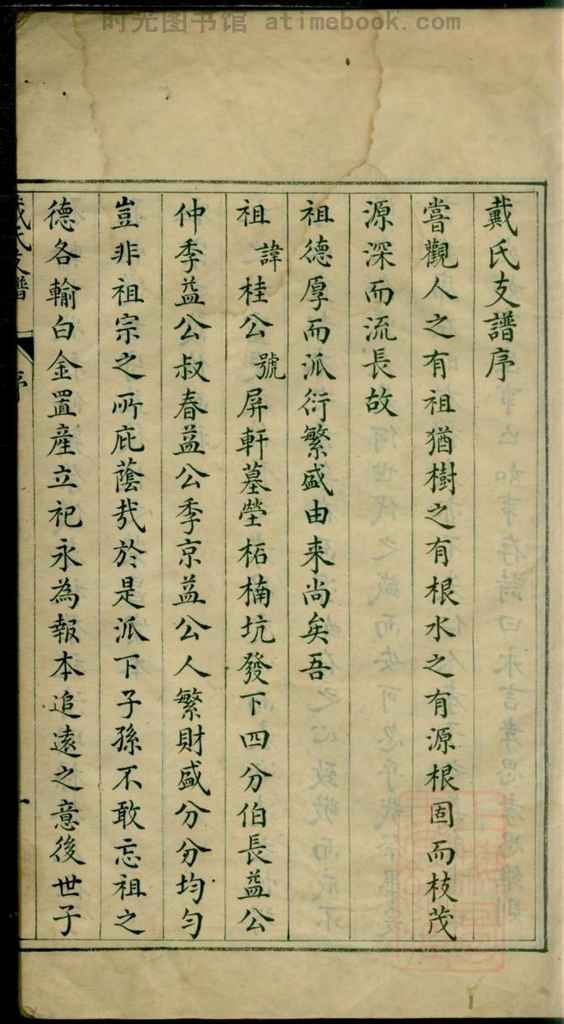 时光图书馆 atimebook.com
戴氏支譜序
嘗觀人之有祖猶樹之有根水之有源根固而枝茂
源深而流長故
祖德厚而派衍繁盛由来尚矣吾
祖諱桂公號屏軒墓塋柘楠坑發下四分伯長益公
仲季益公叔春益公季京益公人繁財盛分分均匀
豈非祖宗之所庇蔭㢤於是派下子孫不敢忘祖之
德各輸白金置產立祀永為報本追遠之意後世子
戴氏支譜 序 一